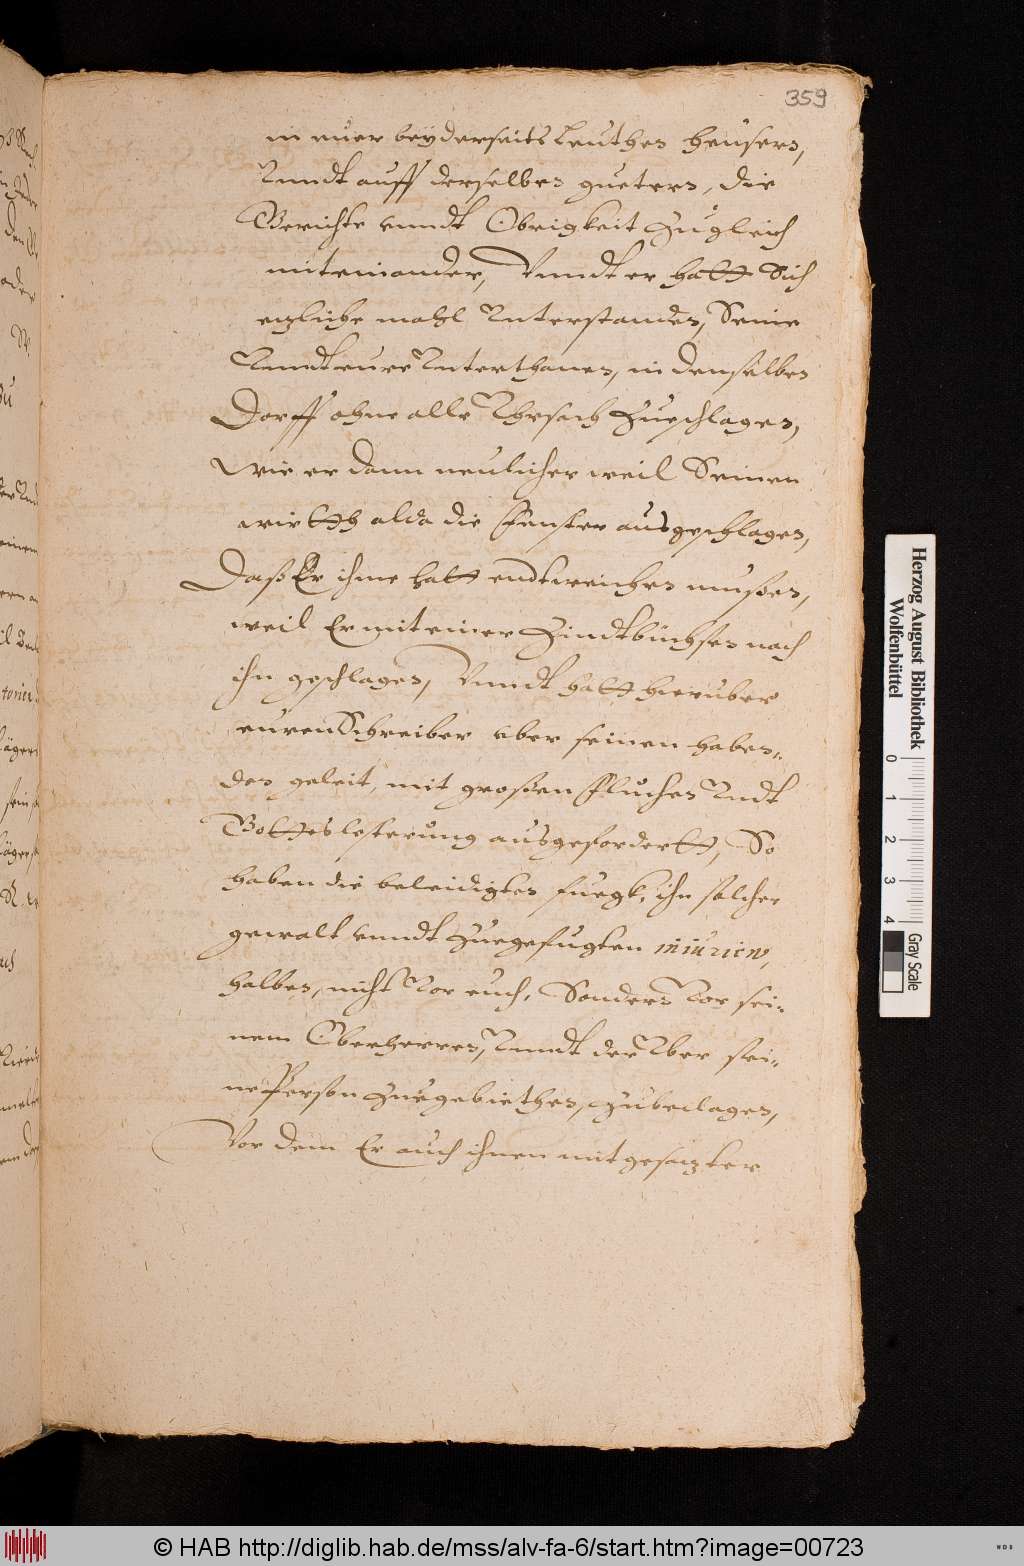 359
in euer beÿderseits Leuthen heusern,
Vnndt auff derselben guetern, die
Gerichte vnndt Obrigkeit Zugleich
miteinander, Vnndt er hatt Sich
etzliche mahl Vnterstanden, Seine
Vnndt eure Vnterthanen, in denselben
Dorff ohne alle Vhrsach Zueschlagen,
wie er dann neulicher weil Seinen
wirtth alda die Fenster ausgeschlagen,
Daß Er ihme hatt endtweichen mußen,
weil Er mit einer Zindtbüchsen nach
ihn geschlagen, Vnndt hatt hieruber
euren Schreiber vber seinen haben,,
den geleit, mit großen Fluchen Vndt
Gotteslesterung ausgefordertt, So
haben die beleidigten fuegk, ihn solcher
gewalt vnndt Zuegefugten iniurien,
halben, nicht Vor euch, Sondern Vor sei,,
nem Oberherren, Vnndt der Vber sei,,
ne Person Zuegebiethen, Zubeclagen,
Vor dem Er auch ihnen mit gesatzter
Herzog August Bibliothek
Wolfenbüttel
0 1 2 3 4
Gray Scale
© HAB http://diglib.hab.de/mss/alv-fa-6/start.htm?image=00723